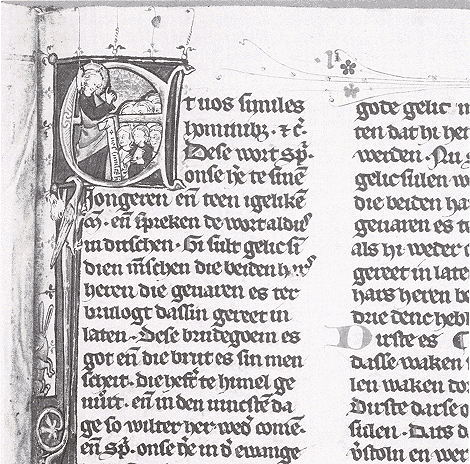 Et uos similes
hominibꝫ · ⁊ c̄
Dese wort sp̄.
onse h̄e te sinē
Jongeren en̄ teen igelikē
m̄. en̄ spreken de wort aldus
in ditschen. Gi sult gelic si
dien mēschen die beiden hars
heren die geuaren es ter
brulogt dassin gereet in
laten. Dese brudegoem es
got en̄ die brut es sin men
scheit. die heft te himel ge
en̄ in den da
ge so wilter her wed comē.
en̄ sp̄. onse h̄e in d̄ ewange
gode gelic
ten dat hi he
werden. Nu
gelic sulen w
die beiden har
geuaren es t
als hi weder c
gereet in late
hars heren be
drie denc hebb
Dirste es
dasse waken
len waken to
Dirste darse o
sulen. Dats d
v̄stoln en wer